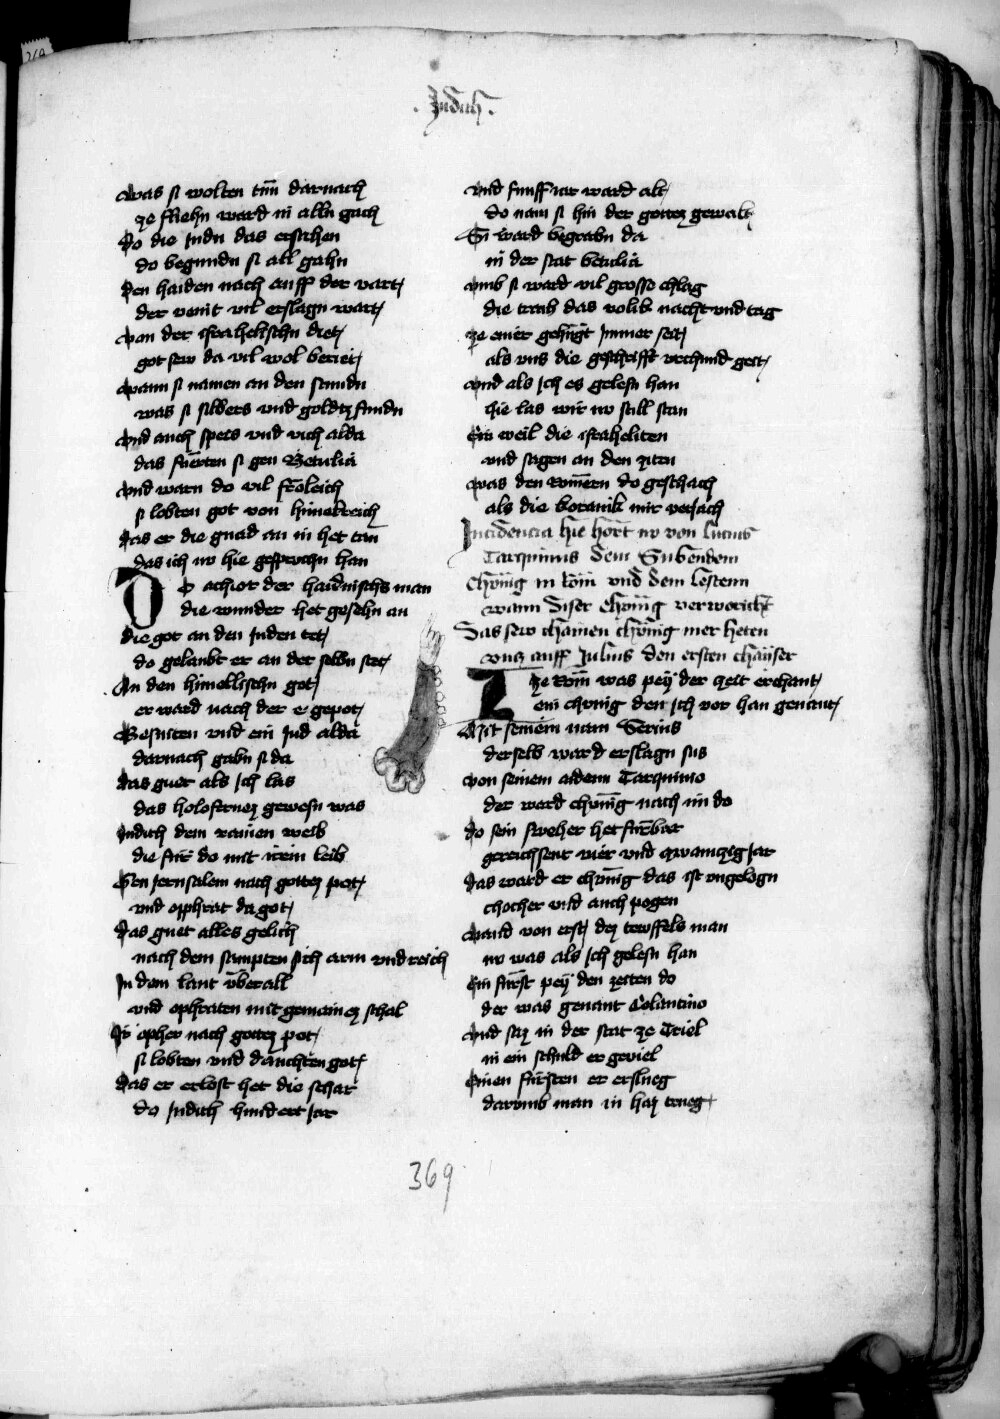 . Judith .
Was si wolten tun̄ darnach
ze fliehn ward in alln gach
Do die Judn das ersahen
do begundn si all gahn
Den haiden nach auff der vart
der veint vil erslagn wart
Von der israhelischn diet
got sew da vil wol beriet
Wann si namen an den stundn
was si silbers vnd goldtz fundn
Vnd auch speis vnd vich alda
das fuerten si gen Betulia
Vnd warn do vil froleich
si lobten got von himelreich
Das er die gnad an in het tan
das ich nv hie gesprochn han
Do achior der haidnischs man
die wunder het gesehn an
die got an den Juden tet
do gelaubt er an der selbn stet
An den himelischn got
er ward nach der e gepot
Besniten vnd ein Jud alda
darnach gabn si da
Das guet als ich las
das holofernez gewesn was
Judith dem rainen weib
die fuer do mit irem leib
Gen Jerusalem nach gottez pot
vnd opphrat da got
Das guet alles gelich
nach dem sampten sich arm vnd reich
In dem lant v̈berall
vnd ophraten mit gemainez schal
Ir opher nach gottez pot
si lobten vnd danchten got
Das er erlost het die schar
do Judith hundert jar
Vnd funff iar ward alt
do nam si hin der gottez gewalt
Si ward begrabn da
in der stat betulia
Vmb si ward vil grosse chlag
die traib das volk nacht vnd tag
ze einer gehügt immer seit
als vns die geschrifft vrchund geit
Vnd als ich es gelesn han
hie las wir nv still stan
Ein weil die israheliten
vnd sagen an den ziten
Was den Romern do geschach
als die koranik mir veriach
Incidencia hie hört nv von lucius
Tarquinius dem Subenden
Chünig in Rom vnd dem lesten
wann diser Chünig verworicht
Das sew chainen chünig mer heten
vncz auff Julius den ersten chayser
Ze Rom was pey der zeit erchant
ein chvnig den ich vor han genant
Mit seinem nam Servius
derselb ward erslagn sus
Von seinem aidem Tarquinio
der ward chunig nach im do
do sein sweher het furbar
gereichsent vier vnd zwainczig jar
Das ward er chvnig das ist vngelogn
chocher vnd auch pogen
Vand von erst dez tewffels man
nv was als ich gelesn han
Ein furst pey den zeiten do
der was genant Colantino
Vnd saz in der stat ze Triel
in ein schuld er geviel
Einen fursten er erslueg
darvmb man in haz trueg
369